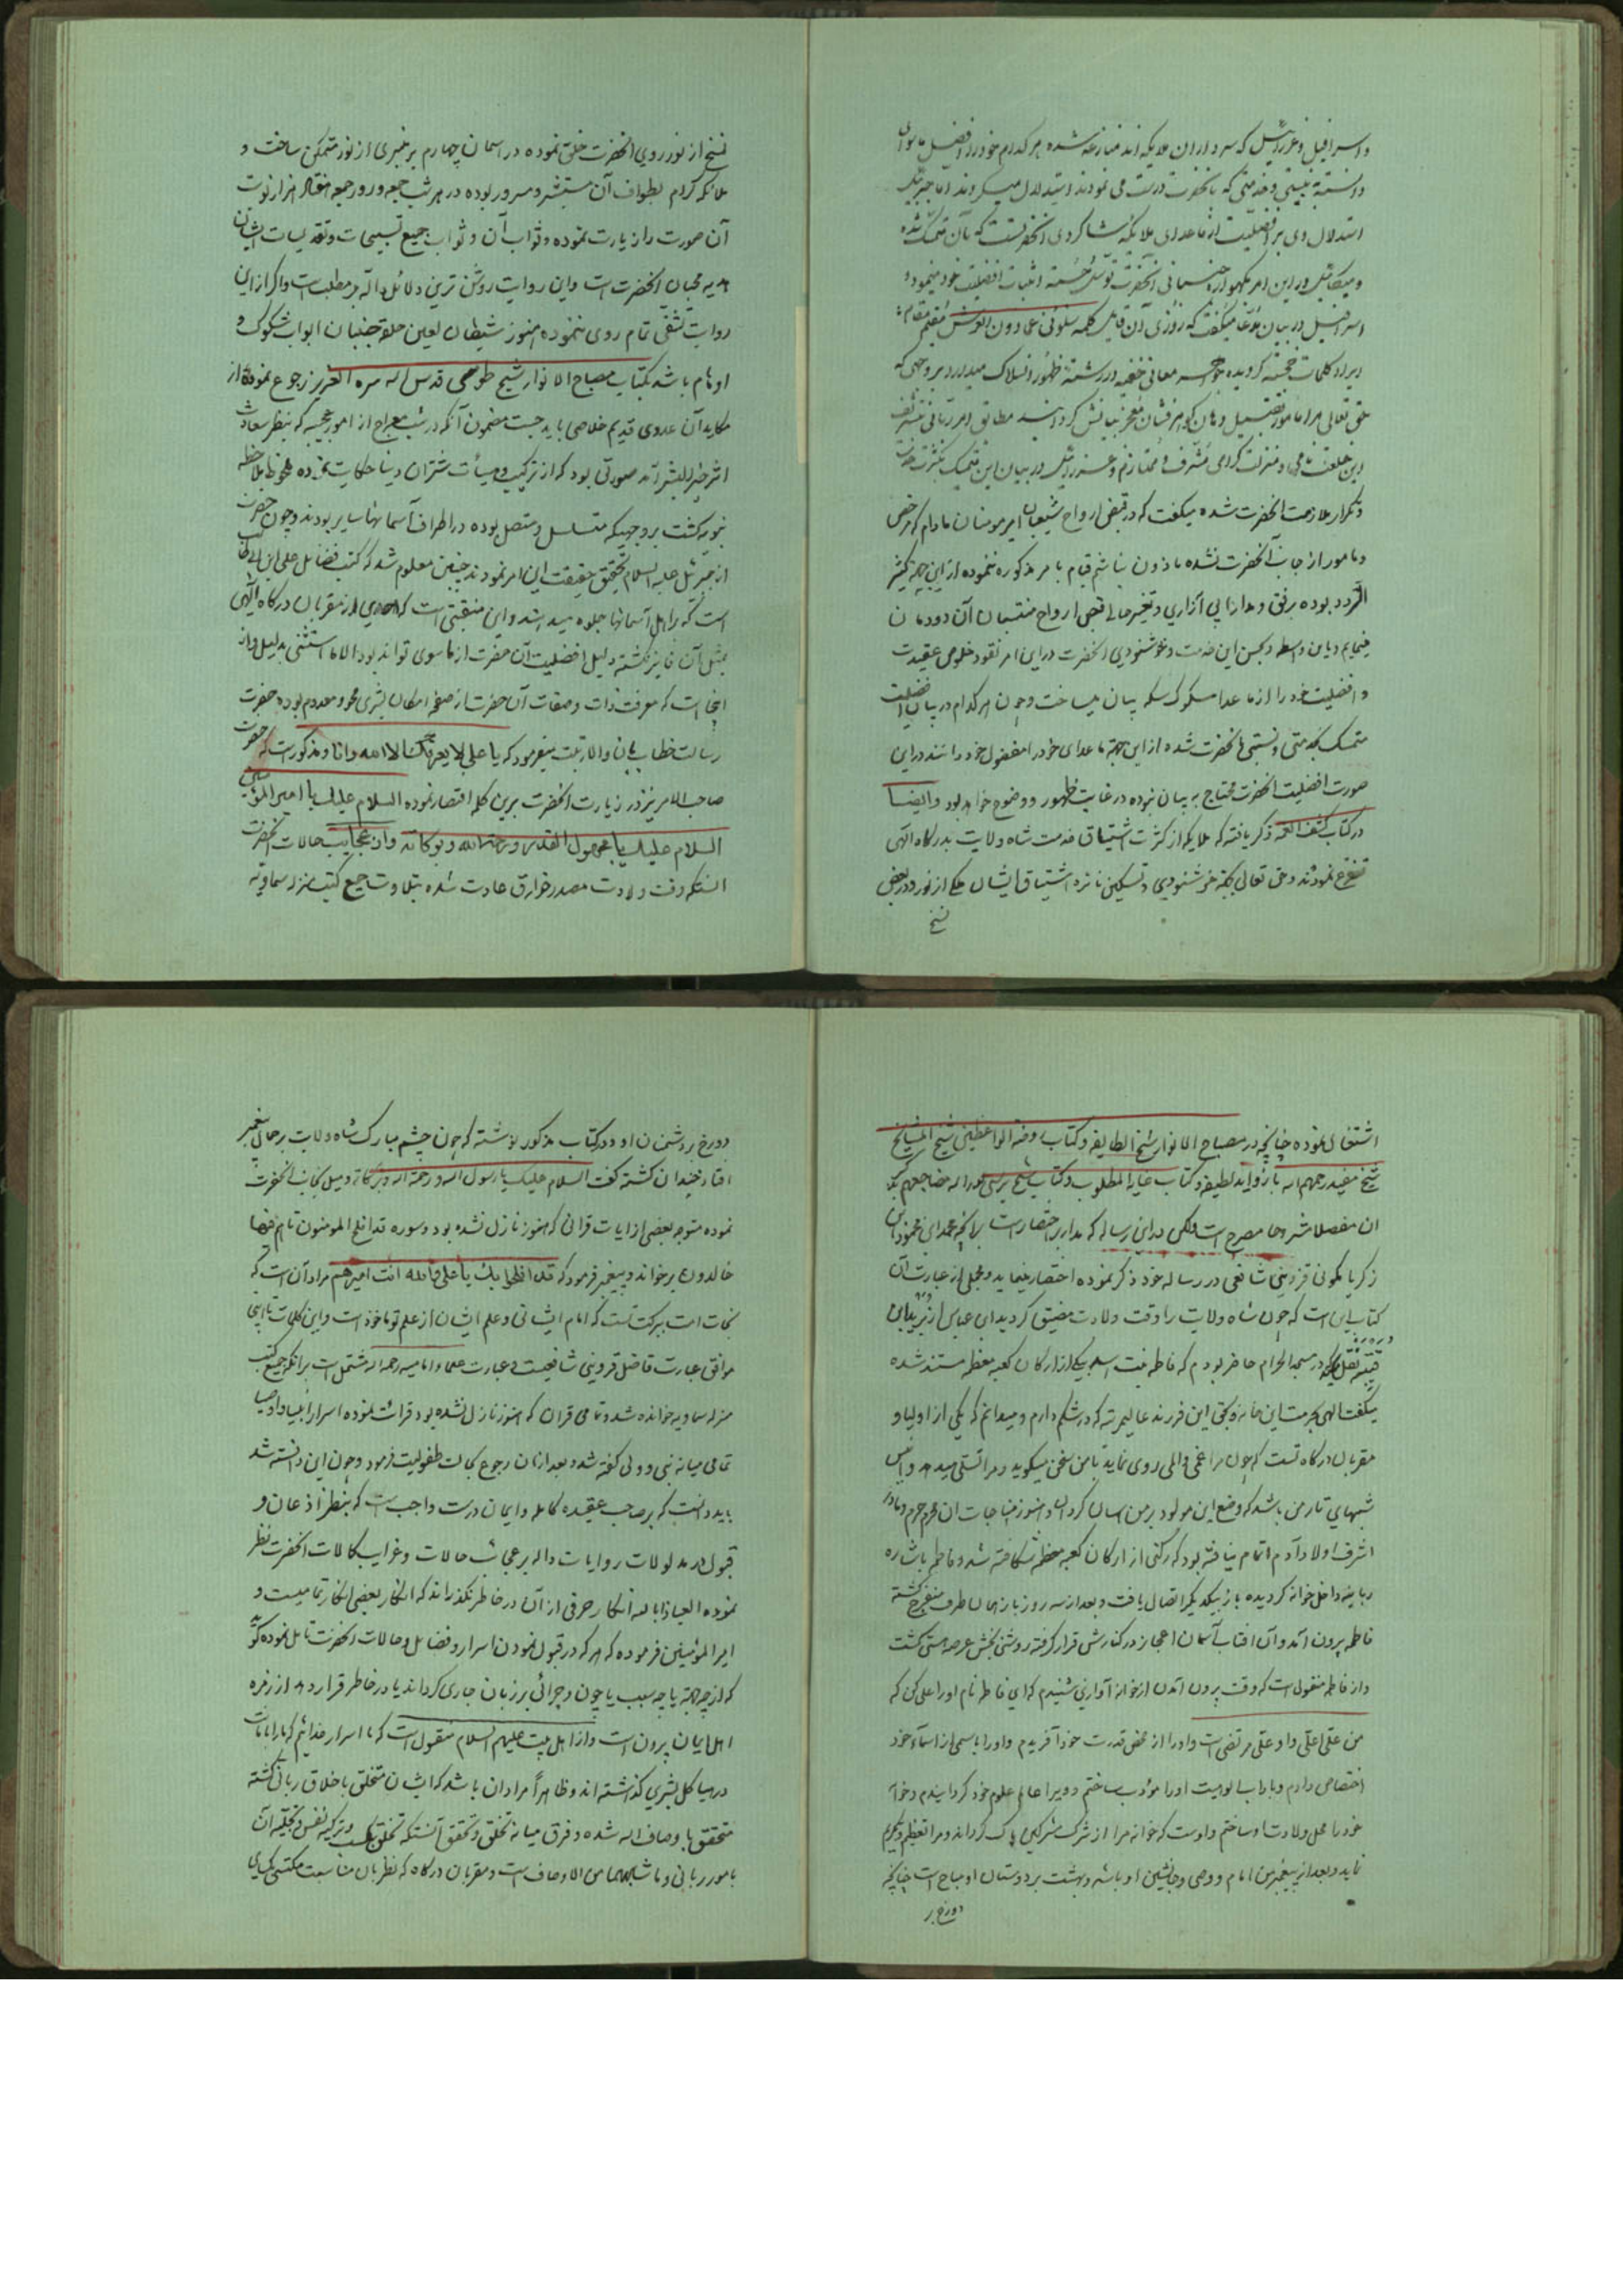 واسرافیل وعزرائیل که سرداران ملایکه اند منازعه شده هر کدام خود را افضل
دانسته بنسبتی وخدمتی که بانحضرت درست می نمودند استدلال میکردند اما جبرئیل
استدلال وی بر افضلیت از ماعدای ملائکه شاکردی انحضرتست که بآن متمسک شده
ومیکائیل در این امر انحضرت توسل جسته اثبات افضلیت خود مینمود و
اسرافیل در بیان مدعا میکفت که روزی آن قایل کلمه سلونی عمادون العرش
کلمات کردیده معانی در رشته ظهور انسلاک
حق تعالی مرا مامور مطابق امر ربانی
این خلعت نامی و منزلت کرامی مشرف و ممتازم وعزرائیل در بیان این تمسک
وتکرار ملازمت انحضرت شده میکفت که در قبض ارواح شیعیان امیر مومنان مادام که مرخص
ومامور از جانب آنحضرت نشده ماذون نباشم قیام بامر مذکوره ننموده از این جهة کثیر
التردد بوده برفق ومدارا بی آزاری قبض ارواح منتسبان آن دودمان
مینمایم وباین واسطه وبحسن این خدمت وخوشنودی انحضرت در این امر نقود خلوص عقیدت
وافضلیت خود را از ماعدا مسکوک سکه بیان میساخت وچون هر کدام در بیان افضلیت
متمسک بخدمتی ونسبتی بانحضرت شده از این جهة ماعدای خود را مفضول خود دانند در این
صورت افضلیت انحضرت محتاج به بیان نبوده در غایت ظهور ووضوح خواهد بود وایضا
در کتاب کشف الغمه ذکر یافته که ملایکه از کثرت اشتیاق خدمت شاه ولایت بدرکاه الهی
تضرع نمودند وحق تعالی بجهة خوشنودی وتسکین نائره اشتیاق ایشان ملکی از نور ودر بعض
نسخ
نسخ از نور روی انحضرت خلق نموده در اسمان چهارم بر منبری از نور متمکن ساخت و
ملائکه کرام بطواف آن مستبشر ومسرور بوده در هر شب جمعه وروز جمعه هفتاد هزار نوبت
آن صورت را زیارت نموده وثواب آن وثواب جمیع تسبیحات وتقدیسات ایشان
هدیه محبان انحضرت است واین روایت روشن ترین دلائل داله بر مطلب است واکر از این
روایت تشفی تمام روی ننموده هنوز شیطان لعین حلقه جنبان ابواب شکوک و
اوهام باشد بکتاب مصباح الانوار شیخ طوسی قدس اله سره العزیز رجوع نموده از
مکاید آن عدوی قدیم خلاصی باید جست مضمون آنکه در شب معراج از امور عجیبه که بنظر سعادت
اثر خیر البشر آمد صورتی بود که از ترکیب وهیأت شتران دنیا حکایت نموده ملاحظه
نبویه کشت بروجهیکه متسلسل ومتصل بوده در اطراف آسمانها سایر بودند وچون حضرت
از جبرئل علیه السلام تحقیق حقیقت این امر نمودند چنین معلوم شد که کتب فضائل علی ابن ابی طالب
است که بر اهل آسمانها جلوه میدهند واین منقبتی است که احدی از مقربان درکاه الهی
بمثل آن فایز نکشته دلیل افضلیت آن حضرت از ما سوی تواند بود الا ما استثنی بدلیل واز
اینجا است که معرفت ذات وصفات آن حضرت از صفحه امکان بشری محو ومعدوم بوده حضرت
رسالت خطاب بان والا رتبت میفرمود که یا علی لا یعرفک الا الله وانا ومذکور است که حضرت
صاحب الامر نیز در زیارت انحضرت برین کلمه اقتصار نموده السلام علیک یا امیر المؤمنین
السلام علیک یا مجهول القدر ورحمة الله وبرکاته واز عجایب حالات انحضرت
انستکه وقت ولادت مصدر خوارق عادت شده بتلاوت جمیع کتب منزله سماویه
اشتغال نموده چنانچه در مصباح الانوار شیخ الطایفه وکتاب روضة الواعظین شیخ المشایخ
شیخ مفید رحمهم اله با زواید لطیفه وکتاب غایة المطلوب وکتاب شیخ
ان مفصلا مشروحا مصرح است ولکن در این رساله که مدار بر اختصار است بر آنچه محمد ابن محمود ابن
زکریا کمونی قزوینی شافعی در رساله خود ذکر نموده اختصار مینماید ومجمل از عبارت آن
کتاب این است که چون شاه ولایت را وقت ولادت مضیق کردید ابن عباس از بریدة ابن
قعنب نقل میکند در مسجد الحرام حاضر بودم که فاطمه بنت اسد بیکی از ارکان کعبه معظمه مستند شده
میکفت الهی بحرمت این خانه وبحق این فرزند عالیمرتبه که در شکم دارم ومیدانم که یکی از اولیا و
مقربان درکاه تست که چون مرا غمی والمی روی نماید با من سخن میکوید ومرا تسلی میدهد وانیس
شبهای تار من باشد که وضع این مولود بر من اسان کردان وهنوز مناجات ان محرم حرم ومادر
اشرف اولاد آدم اتمام نیافته بود که رکنی از ارکان کعبه معظمه شکافته شد وفاطمه باشاره
ربانیه داخل خانه کردیده باز بیکدیکر اتصال یافت وبعد از سه روز باز همان طرف منفرج کشته
فاطمه بیرون آمد وآن افتاب آسمان اعجاز در کنارش قرار کرفته روشنی بخش عرصه هستی کشت
واز فاطمه منقول است که وقت بیرون آمدن از خانه آوازی شنیدم که ای فاطمه نام او را علی کن که
من علی اعلی واو علی مرتضی است واو را از محض قدرت خود آفریدم واو را باسمی از اسماء خود
اختصاص دادم وباداب الوهیت او را مؤدب ساختم وویرا عالم علوم خود کردانیدم وخانه
خود را محل ولادت او ساختم واوست که خانه مرا از شرک مشرکین پاک کرداند ومرا تعظیم وتکریم
نماید وبعد از پیغمبر من امام ووصی وجانشین او باشد وبهشت بر دوستان او مباح است چنانچه
دوزخ بر
دوزخ بر دشمنان او ودر کتاب مذکور نوشته که چون چشم مبارک شاه ولایت بر جمال پیغمبر
افتاد خندان کشته کفت السلام علیک یا رسول اله ورحمة اله وبرکاته ومیل بجانب انحضرت
نموده متوجه بعضی از ایات قرانی که هنوز نازل نشده بود وسوره قد افلح المومنون تا هم فیها
خالدون بر خواند وپیغمبر فرمود که قد افلحوا بک یا علی والله انت امیرهم مراد آن است که
نجات امت ببرکت تست که امام ایشانی وعلم ایشان از علم تو ماخوذ است واین کلمات
موافق عبارت فاضل قزوینی شافعیست وعبارت علماء امامیه رحمه اله مشتمل است بر انکه جمیع کتب
منزله سماویه خوانده شد وتمامی قران که هنوز نازل نشده بود قرائت نموده اسرار انبیا واوصیا
تمامی میانه نبی وولی کفته شد وبعد از ان رجوع بحالت طفولیت فرمود وچون این دانسته شد
باید دانست که بر صاحب عقیده کامله وایمان درست واجب است که بنظر اذعان و
قبول در مدلولات روایات داله بر عجایب حالات وغرایب کمالات انحضرت نظر
نموده العیاذا بالله انکار حرفی از آن در خاطر نکذراند که انکار بعضی انکار تمامیست و
امیر المؤمنین فرموده که هر که در قبول نمودن اسرار وفضائل وحالات انحضرت تامل نموده
که از چه جهة یا چه سبب یا چون وچرائی بر زبان جاری کرداند یا در خاطر قرار دهد از زمره
اهل ایمان بیرون است واز اهل بیت علیهم السلام منقول است که ما اسرار خدائیم که
در هیاکل بشری کذاشته اند وظاهرا مراد ان باشد که ایشان متخلق باخلاق ربانی کشته
متحقق باوصاف اله شده وفرق میانه تخلق وتحقق آنستکه تخلق وتزکیه نفس وتجلیه آن
بامور ربانی وما شابههما من الاوصاف است ومقربان درکاه که نظر بان مناسبت